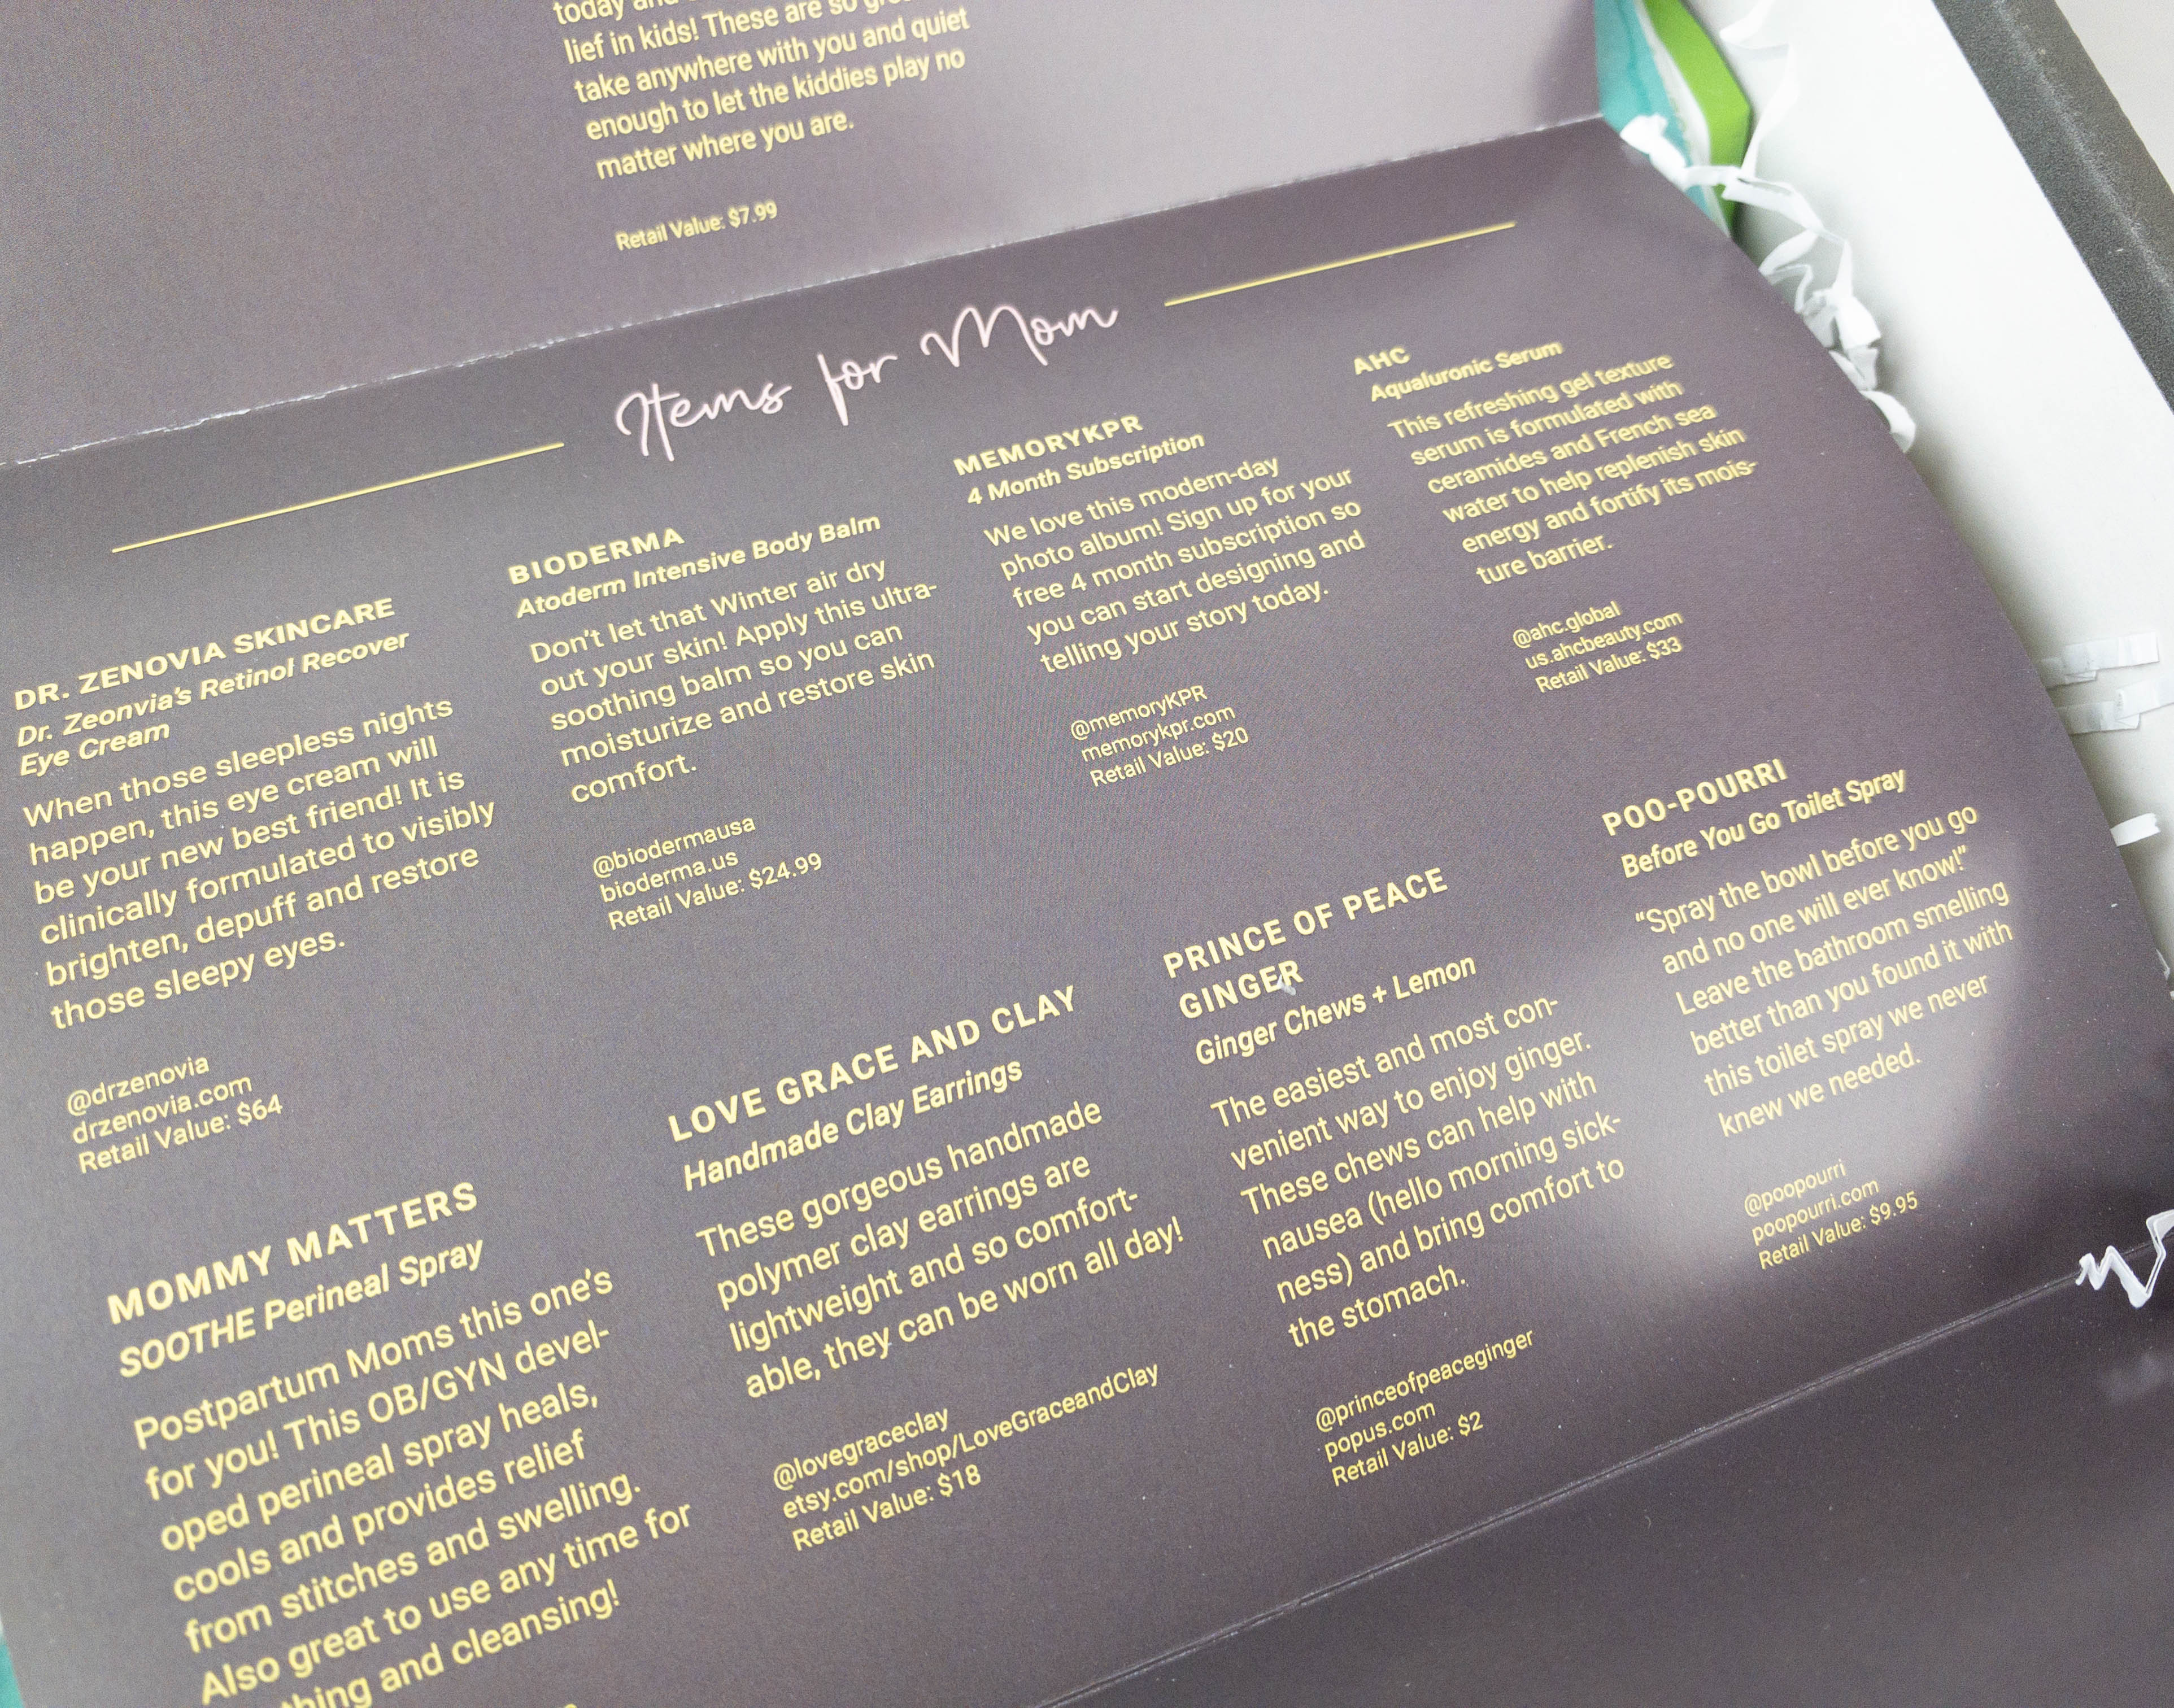 today and
lief in kids! These are so
take anywhere with you and quiet
enough to let the kiddies play no
matter where you are.
Retail Value: $7.99
Items for Mom
DR. ZENOVIA SKINCARE
Dr. Zeonvia's Retinol Recover
Eye Cream
When those sleepless nights
happen, this eye cream will
be your new best friend! It is
clinically formulated to visibly
brighten, depuff and restore
those sleepy eyes.
@drzenovia
drzenovia.com
Retail Value: $64
BIODERMA
Atoderm Intensive Body Balm
Don't let that Winter air dry
out your skin! Apply this ultra-
soothing balm so you can
moisturize and restore skin
comfort.
@biodermausa
bioderma.us
Retail Value: $24.99
MEMORYKPR
4 Month Subscription
We love this modern-day
photo album! Sign up for your
free 4 month subscription so
you can start designing and
telling your story today.
@memoryKPR
memorykpr.com
Retail Value: $20
AHC
Aqualuronic Serum
This refreshing gel texture
serum is formulated with
ceramides and French sea
water to help replenish skin
energy and fortify its mois-
ture barrier.
@ahc.global
us.ahcbeauty.com
Retail Value: $33
MOMMY MATTERS
SOOTHE Perineal Spray
Postpartum Moms this one's
for you! This OB/GYN devel-
oped perineal spray heals,
cools and provides relief
from stitches and swelling.
Also great to use any time for
and cleansing!
LOVE GRACE AND CLAY
Handmade Clay Earrings
These gorgeous handmade
polymer clay earrings are
lightweight and so comfort-
able, they can be worn all day!
@lovegraceclay
etsy.com/shop/LoveGraceandClay
Retail Value: $18
PRINCE OF PEACE
GINGER
Ginger Chews + Lemon
The easiest and most con-
venient way to enjoy ginger.
These chews can help with
nausea (hello morning sick-
ness) and bring comfort to
the stomach.
@princeofpeaceginger
popus.com
Retail Value: $2
POO-POURRI
Before You Go Toilet Spray
"Spray the bowl before you go
and no one will ever know!"
Leave the bathroom smelling
better than you found it with
this toilet spray we never
knew we needed.
@poopourri
poopourri.com
Retail Value: $9.95